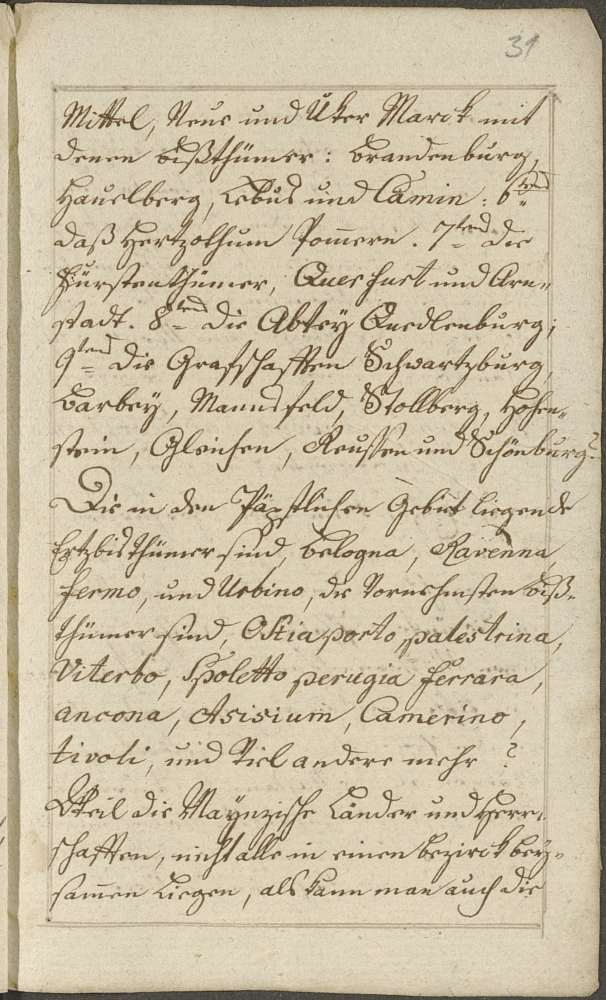 31
Mittel, Neue und Uker Marck mit
denen bißthümer: brandenburg,
Hauelberg, Lebus und Camin: 6tens
daß Hertzothum Pom̄ern. 7tens die
Fürstenthümer, Querfurt und Arn„
stadt. 8tens die Abtey Quedlenburg;
9tens die Grafschafften Schwartzburg,
barbey, Mannsfeld, Stollberg, Hohen„
stein, Gleichen, Reussen und Schönburg?
Die in den Päpstlichen Gebiet liegende
Ertzbisthümer sind, belogna, Ravenna,
fermo, und Urbino, die Vornehmsten biß„
thümer sind, Ostia porto palestrina,
Viterbo, Spoletto perugia ferrara,
ancona, Asisium, Camerino,
tivoli, und Viel andere mehr?
Weil die Maynzische Länder und Herr„
schafften, nicht alle in einen bezirck bey„
sam̄en Liegen, als kann man auch die